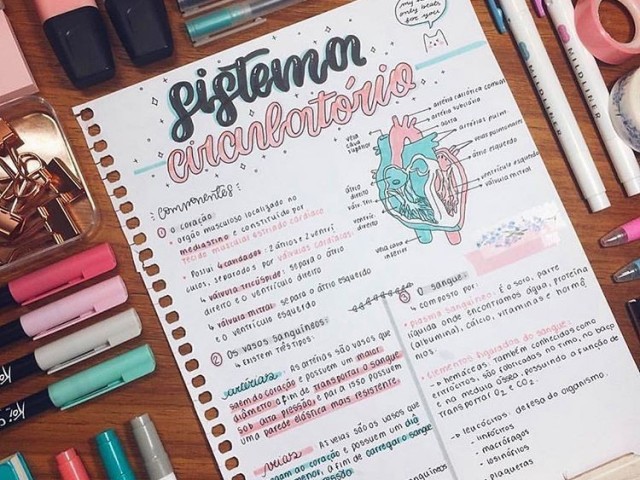 sistema
circulatório
only beats
for you
componentes:
① o coração
• órgão muscular localizado no
mediastino e constituído por
tecido muscular estriado cardíaco
• Possui 4 cavidades: 2 átrios e 2 ventrí
culos, separados por válvulas cardíacas:
↳ válvula tricúspide: separa o átrio
direito e o ventrículo direito
↳ válvula mitral: separa o átrio esquerdo
e o ventrículo esquerdo
② Os vasos sanguíneos:
↳ EXISTEM TRÊS TIPOS:
artérias: AS artérias são vasos que
saem do coração e possuem um maior
diâmetro a fim de transportar o sangue
sob alta pressão e para isso possuem
uma parede elástica mais resistente.
veias: AS veias são os vasos que
ao coração e possuem um diâ
menor, a fim de carregar o sangue
artéria carótida comum
artéria subclávia
aorta
artérias pulm.
veias pulmonares
átrio esquerdo
ventrículo esquerdo
válvula mitral
veia
cava
superior
átrio
direito
válv. tri.
ventríc.
direito
veia cava
inferior
③ O sangue:
↳ composto por:
• plasma sanguíneo: É o soro, parte
líquida onde encontramos água, proteína
(albumina), cálcio, vitaminas e hormô
nios.
• Elementos figurados do sangue:
- hemácias: também conhecidas como
eritrócitos, são fabricadas no timo, no baço
e na medula óssea, possuindo a função de
transportar O₂ e CO₂.
- leucócitos: defesa do organismo.
• linfócitos
• macrófagos
• eosinófilos
- plaquetas
MILDLINER
MILDLINER